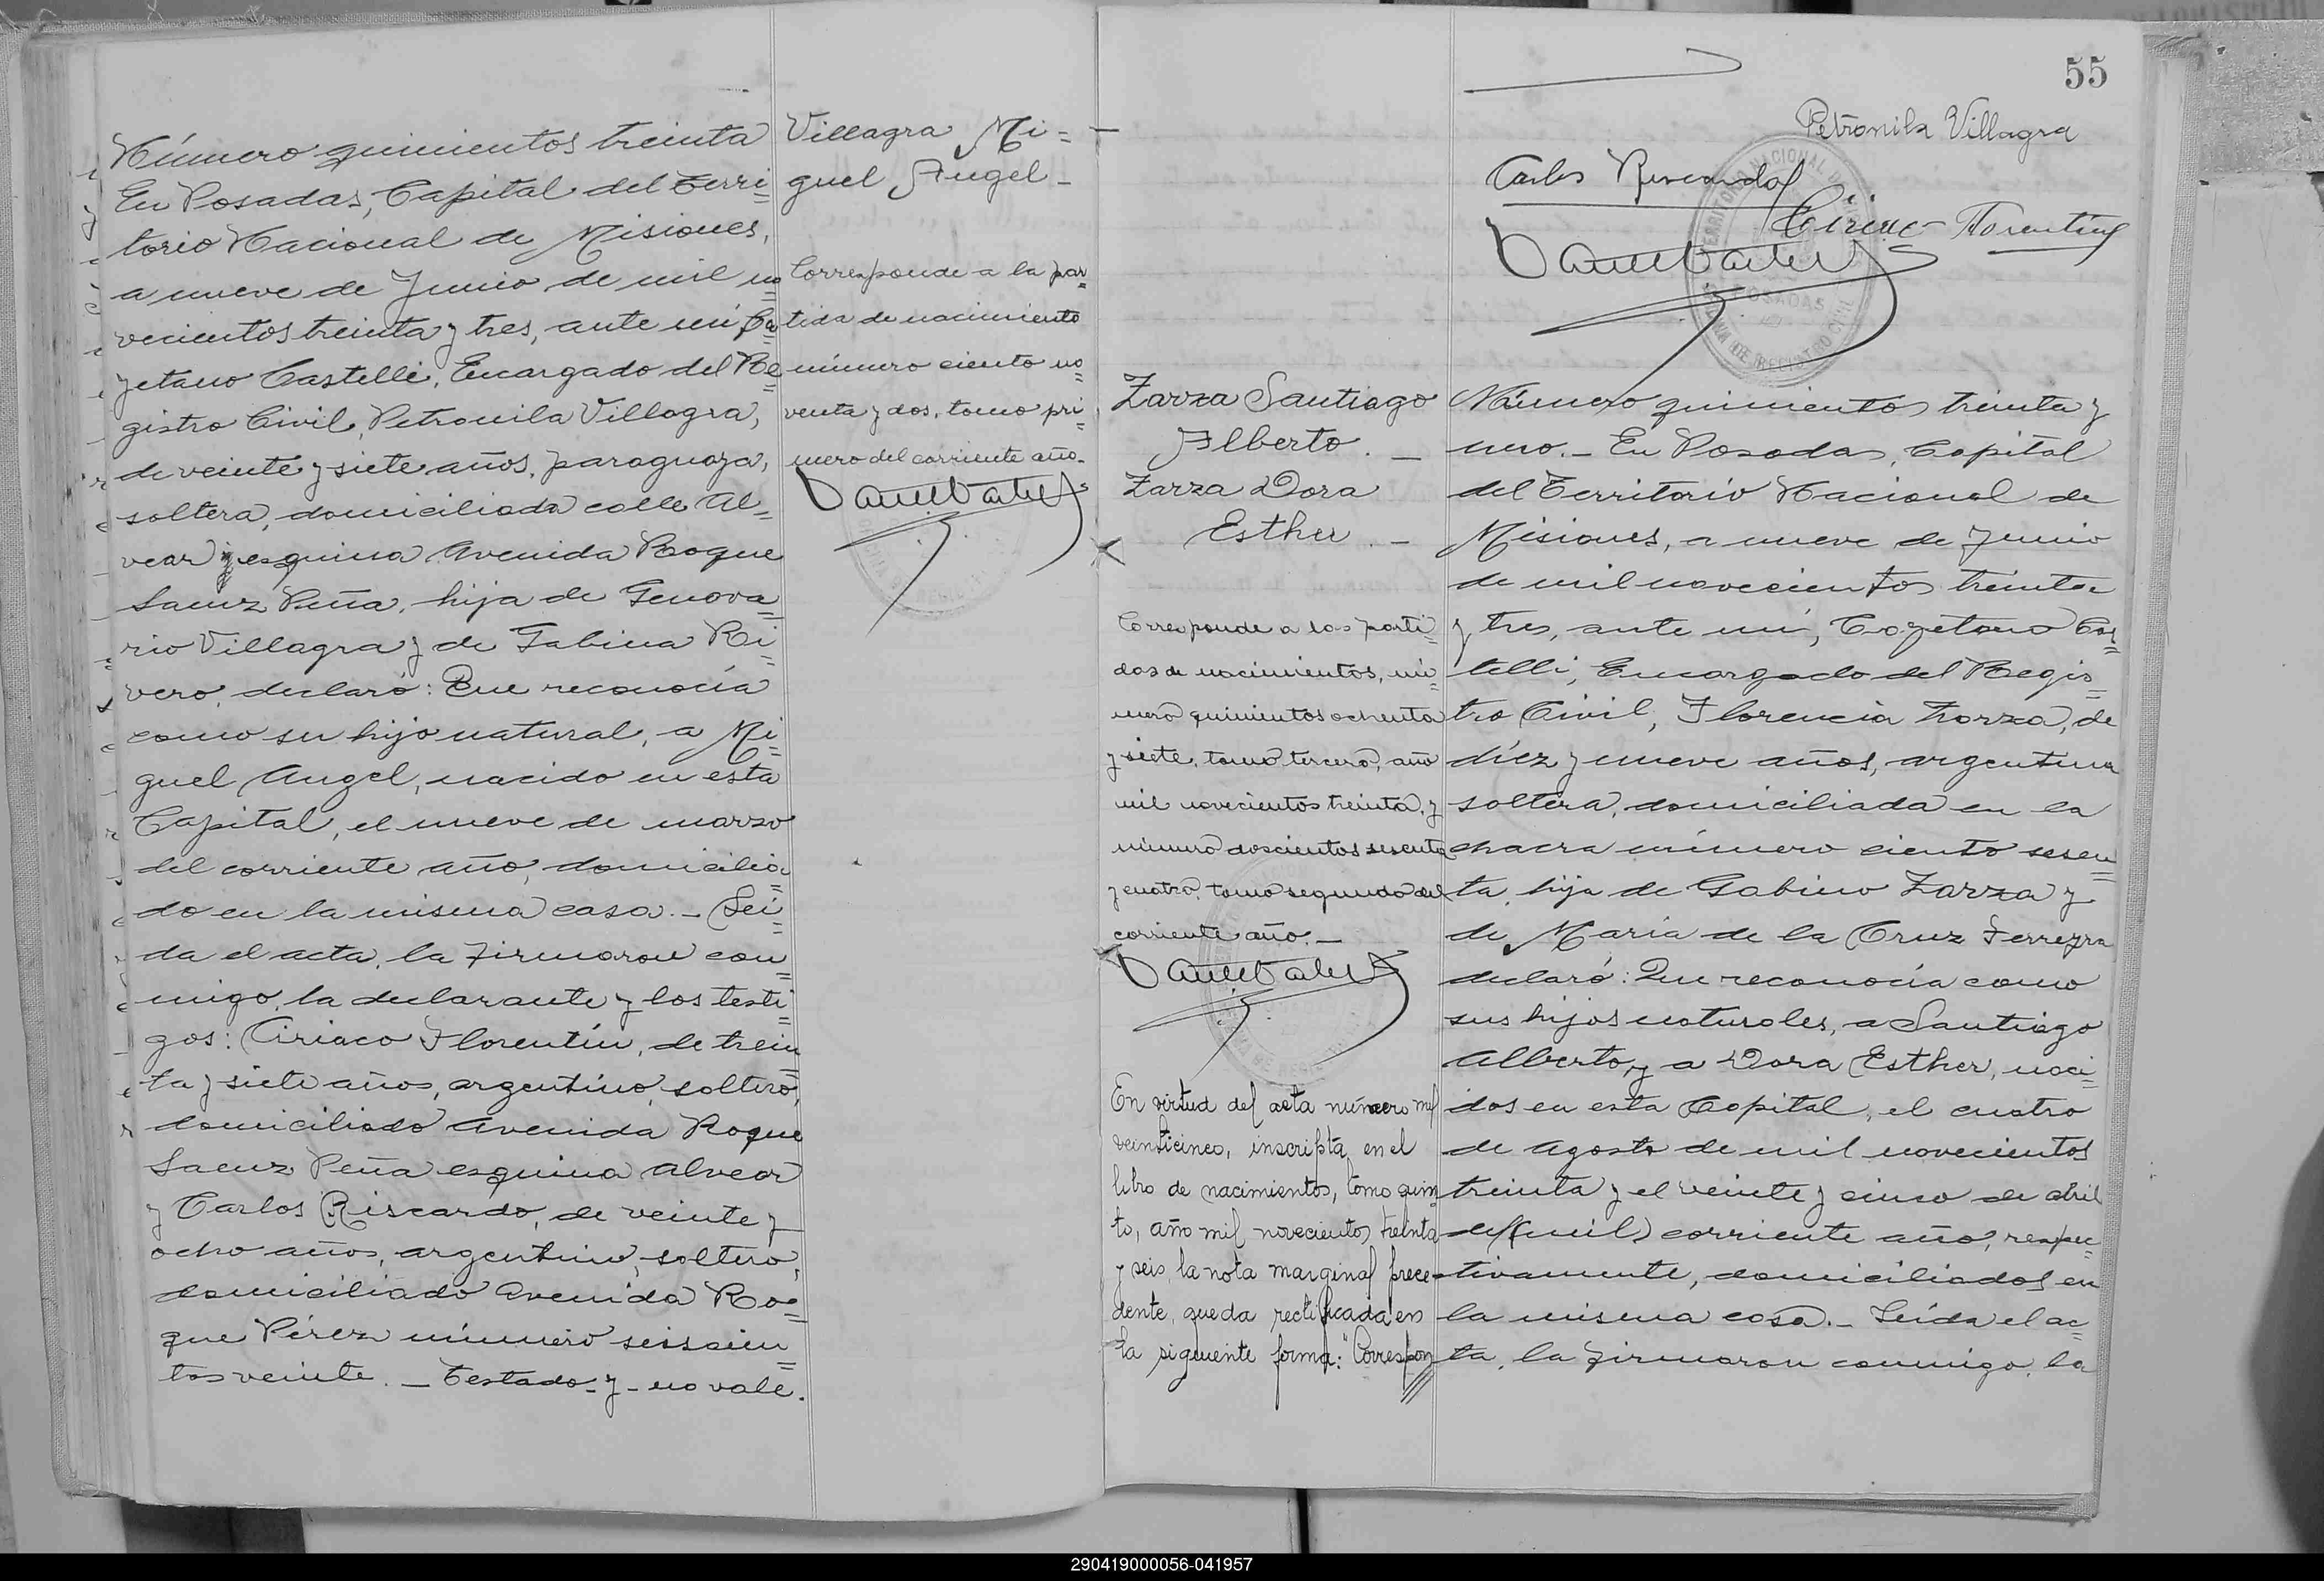 Número quinientos treinta
En Posadas, Capital del Terri=
torio Nacional de Misiones,
a nueve de Junio de mil no=
vecientos treinta y tres, ante mí, Ca=
yetano Castelli, Encargado del Re=
gistro Civil, Petronila Villagra,
de veinte y siete años, paraguaya,
soltera, domiciliada calle Al=
vear y esquina Avenida Roque
Saenz Peña, hija de Genova=
rio Villagra y de Gabina Ri=
vero, declaró: Que reconocía
como su hijo natural, a Mi=
guel Angel, nacido en esta
Capital, el nueve de marzo
del corriente año, domicilia=
do en la misma casa. _ Leí=
da el acta, la firmaron con=
migo, la declarante y los testi=
gos: Ciriaco Florentín, de trein=
ta y siete años, argentino, soltero,
domiciliado Avenida Roque
Saenz Peña esquina Alvear
y Carlos Riscardo, de veinte y
ocho años, argentino, soltero,
domiciliado Avenida Ro=
que Pérez número seiscien=
tos veinte. _ Testado - y - no vale.
Villagra Mi=
guel Angel _
Corresponde a la par=
tida de nacimiento
número ciento no=
venta y dos, tomo pri=
mero del corriente año.
55
Petronila Villagra
Carlos Riscardo
Ciriaco Florentín
TERRITORIO NACIONAL DE
POSADAS
OFICINA DE REGISTRO CIVIL
Zarza Santiago
Alberto. _
Zarza Dora
Esther. _
Corresponde a las parti=
das de nacimientos, nú=
mero quinientos ochenta
y siete, tomo tercero, año
mil novecientos treinta, y
número doscientos sesenta
y cuatro, tomo segundo del
corriente año. _
En virtud del acta número mil
veinticinco, inscripta en el
libro de nacimientos, tomo quin=
to, año mil novecientos treinta
y seis, la nota marginal prece=
dente, queda rectificada en
la siguiente forma: "Correspon
Número quinientos treinta y
uno. _ En Posadas, Capital
del Territorio Nacional de
Misiones, a nueve de Junio
de mil novecientos treinta
y tres, ante mí, Cayetano Cas=
telli, Encargado del Regis=
tro Civil, Florencia Zarza, de
diez y nueve años, argentina
soltera, domiciliada en la
chacra número ciento sesen=
ta, hija de Gabino Zarza y
de María de la Cruz Ferreyra
declaró: Que reconocía como
sus hijos naturales, a Santiago
Alberto, y a Dora Esther, naci=
dos en esta Capital, el cuatro
de Agosto de mil novecientos
treinta y el veinte y cinco de abril
del (mil) corriente año, respec=
tivamente, domiciliados en
la misma casa. _ Leída el ac=
ta, la firmaron conmigo, la
290419000056-041957